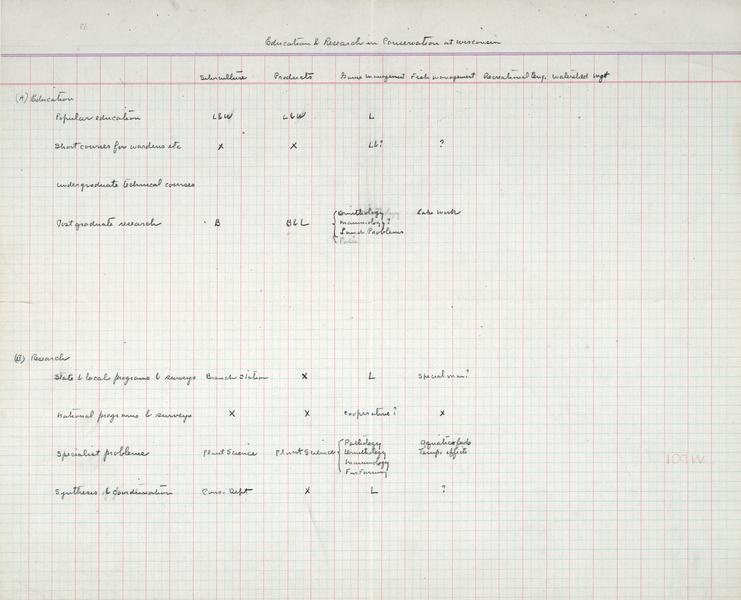 Education & Research in Conservation at Wisconsin
Silviculture Products Game Management Fish Management Recreational Eng. Watershed Mgt
(A) Education
Popular education L&W L&W L
Short courses for wardens etc x x L&? ?
Undergraduate technical courses
Post graduate research B B & L { Ornithology Lake work
Mammalogy?
Land Problems
(B) Research
State & local programs & surveys Branch Station x L Special man?
National programs & surveys x x Cooperative? x
Specialist problems Plant Science Plant Science { Pathology Aquatic foods
Ornithology Temp. effects
Mammalogy
Fur Farming
Synthesis & coordination Cons. Dept x L ?